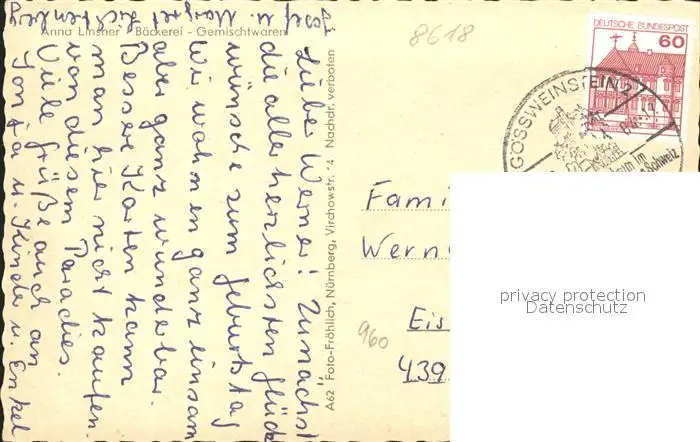 Anna Linsner Bäckerei - Gemischtwaren
Lieber Werner! Zunächst
die allerherzlichsten Glück
wünsche zum Geburtstag
Wir wohnen ganz einsam
aber ganz wunderbar.
Bessere Karten kann
man hier nicht kaufen
von diesem Paradies.
Viele Grüße auch an
u. Kinder u. Enkel
Josef u. Margret
A62 Foto-Fröhlich, Nürnberg, Virchowstr. 14 Nachdr. verboten
8618
DEUTSCHE BUNDESPOST
60
GÖSSWEINSTEIN 2
im
Schweiz
Fami
Wern
Eis
439
960
privacy protection
Datenschutz